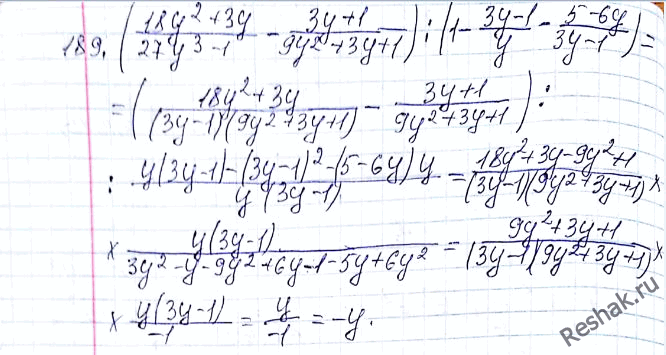 189. ( (18y² + 3y)/(27y³ - 1) - (3y+1)/(9y²+3y+1) ) : (1 - (3y-1)/y - (5-6y)/(3y-1)) =
= ( (18y²+3y)/((3y-1)(9y²+3y+1)) - (3y+1)/(9y²+3y+1) ) :
: (y(3y-1)-(3y-1)²-(5-6y)y)/(y(3y-1)) = (18y²+3y-9y²+1)/((3y-1)(9y²+3y+1)) ×
× (y(3y-1))/(3y²-y-9y²+6y-1-5y+6y²) = (9y²+3y+1)/((3y-1)(9y²+3y+1)) ×
× (y(3y-1))/(-1) = y/(-1) = -y.
Reshak.ru